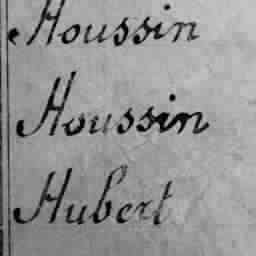 Houssin
Houssin
Hubert